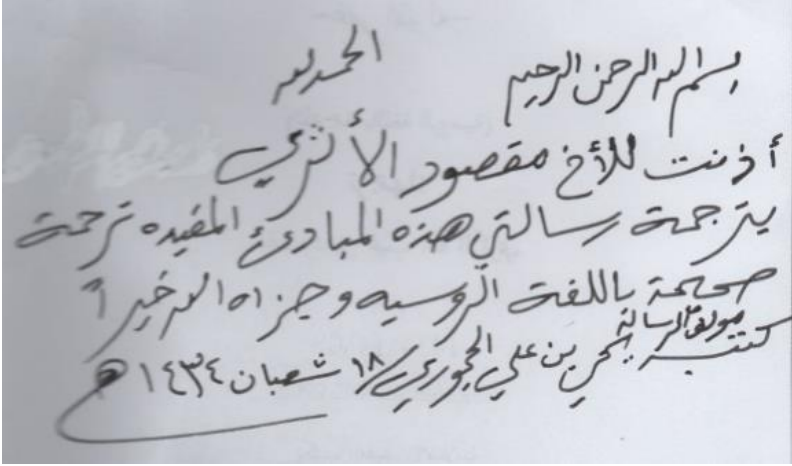 بسم الله الرحمن الرحيم الحمد لله
أذنت للأخ مقصود الأثري
بترجمة رسالتي هذه المبادئ المفيده ترجمة
صحيحة باللغة الروسيه وجزاه الله خيراً
كتبه مؤلف الرسالة يحيى بن علي الحجوري / ١٨ شعبان ١٤٣٤هـ